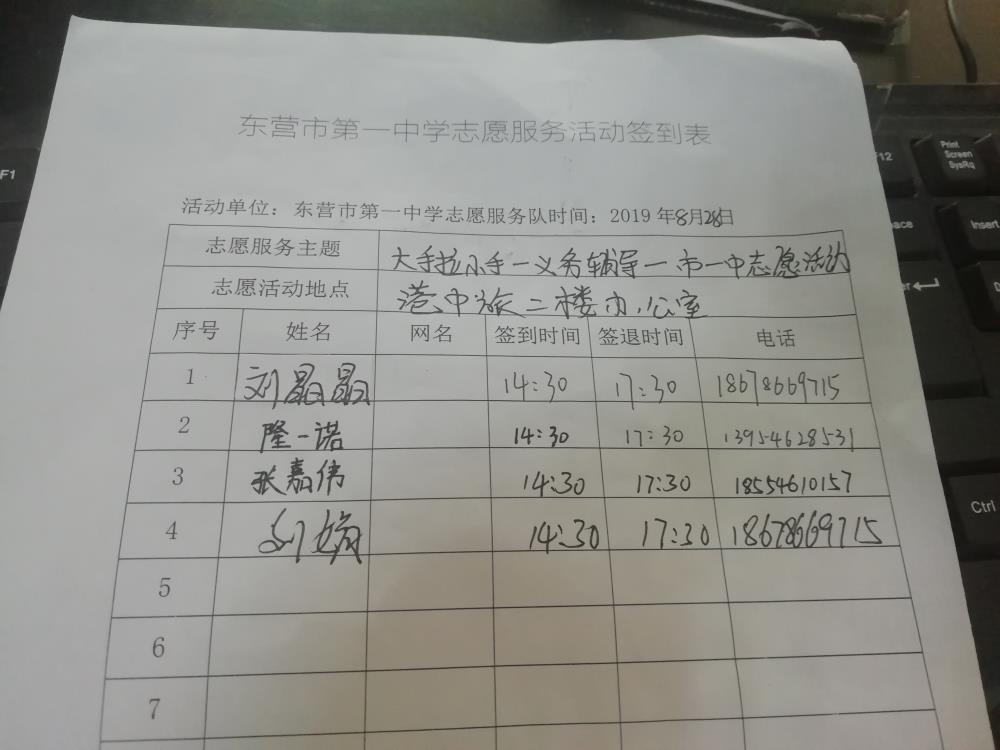 东营市第一中学志愿服务活动签到表
活动单位：东营市第一中学志愿服务队时间：2019年8月28日
志愿服务主题 大手拉小手一义务辅导一市一中志愿活动
志愿活动地点 港中旅二楼办公室
序号 姓名 网名 签到时间 签退时间 电话
1 刘晶晶 14:30 17:30 18678669715
2 隆一诺 14:30 17:30 13954628531
3 张嘉伟 14:30 17:30 18554610157
4 刘娟 14:30 17:30 18678669715
5
6
7
F1
F12
Print Screen SysRq
Insert
Ctrl